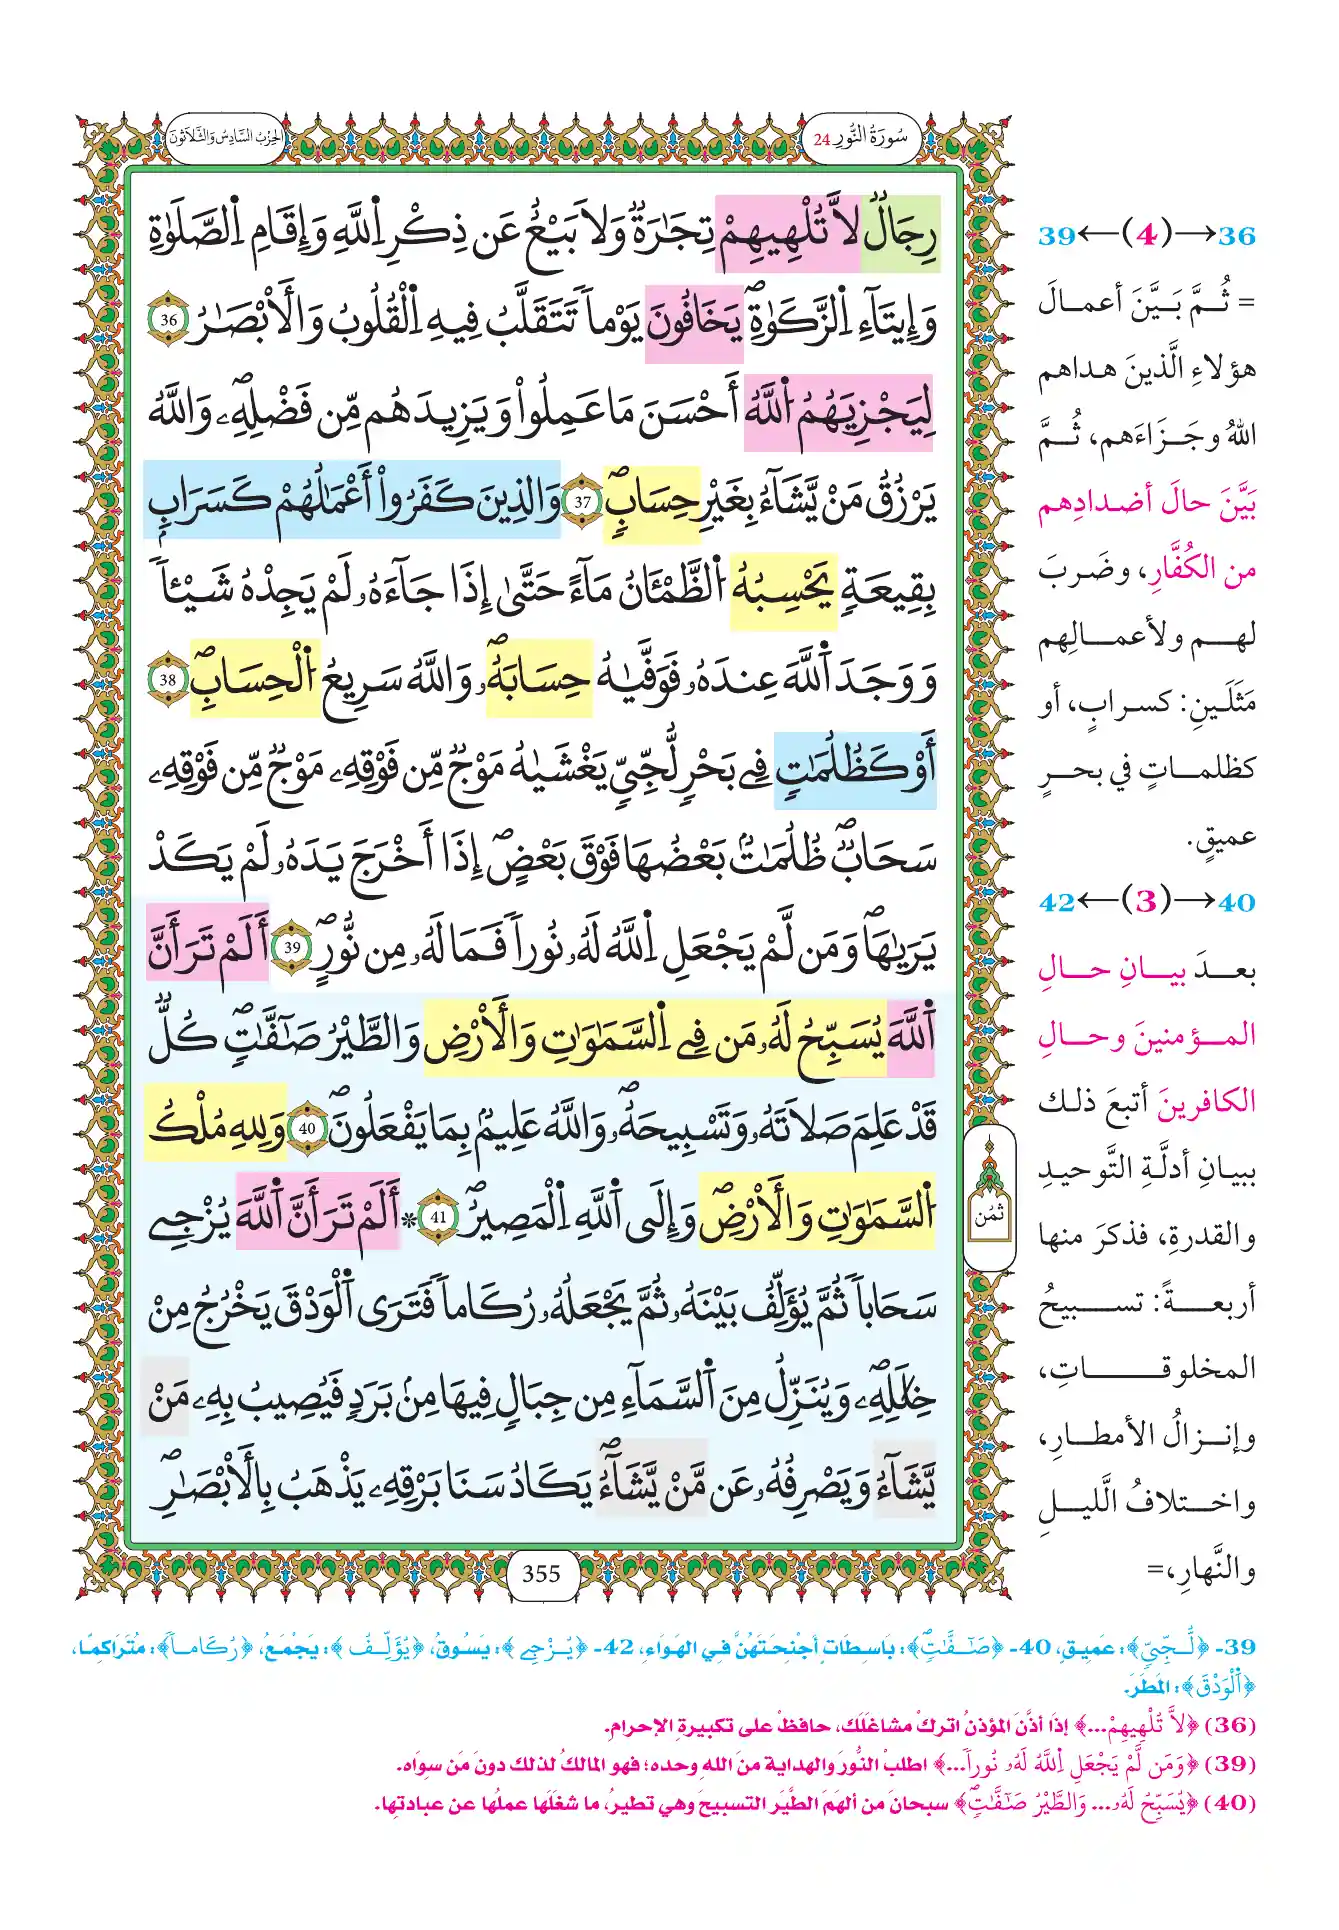 سُورَةُ النُّورِ 24
الحِزْبُ السَّادِسُ وَالثَّلَاثُونَ
رِجَالٞ لَّا تُلْهِيهِمْ تِجَٰرَةٞ وَلَا بَيْعٌ عَن ذِكْرِ اِ۬للَّهِ وَإِقَامِ اِ۬لصَّلَوٰةِ
وَإِيتَآءِ اِ۬لزَّكَوٰةِۖ يَخَافُونَ يَوْماٗ تَتَقَلَّبُ فِيهِ اِ۬لْقُلُوبُ وَالَابْصَٰرُ 36
لِيَجْزِيَهُمُ اُ۬للَّهُ أَحْسَنَ مَا عَمِلُواْ وَيَزِيدَهُم مِّن فَضْلِهِۦۖ وَاللَّهُ
يَرْزُقُ مَنْ يَّشَآءُ بِغَيْرِ حِسَابٖۖ 37 وَالذِينَ كَفَرُواْ أَعْمَٰلُهُمْ كَسَرَابِۢ
بِقِيعَةٖ يَحْسِبُهُ اُ۬لظَّمْـَٔانُ مَآءً حَتَّىٰٓ إِذَا جَآءَهُۥ لَمْ يَجِدْهُ شَيْـٔاٗ
وَوَجَدَ اَ۬للَّهَ عِندَهُۥ فَوَفَّيٰهُ حِسَابَهُۥۖ وَاللَّهُ سَرِيعُ اُ۬لْحِسَابِۖ 38
أَوْ كَظُلُمَٰتٖ فِے بَحْرٖ لُّجِّيّٖ يَغْشَيٰهُ مَوْجٞ مِّن فَوْقِهِۦ مَوْجٞ مِّن فَوْقِهِۦ
سَحَابٞۖ ظُلُمَٰتُۢ بَعْضُهَا فَوْقَ بَعْضٍۖ إِذَآ أَخْرَجَ يَدَهُۥ لَمْ يَكَدْ
يَرَيٰهَاۖ وَمَن لَّمْ يَجْعَلِ اِ۬للَّهُ لَهُۥ نُوراٗ فَمَا لَهُۥ مِن نُّورٍۖ 39 أَلَمْ تَرَ أَنَّ
اَ۬للَّهَ يُسَبِّحُ لَهُۥ مَن فِے اِ۬لسَّمَٰوَٰتِ وَالَارْضِ وَالطَّيْرُ صَٰٓفَّٰتٖۖ كُلّٞ
قَدْ عَلِمَ صَلَاتَهُۥ وَتَسْبِيحَهُۥۖ وَاللَّهُ عَلِيمُۢ بِمَا يَفْعَلُونَۖ 40 وَلِلهِ مُلْكُ
اُ۬لسَّمَٰوَٰتِ وَالَارْضِۖ وَإِلَى اَ۬للَّهِ اِ۬لْمَصِيرُۖ 41 * أَلَمْ تَرَ أَنَّ اَ۬للَّهَ يُزْجِے
سَحَاباٗ ثُمَّ يُؤَلِّفُ بَيْنَهُۥ ثُمَّ يَجْعَلُهُۥ رُكَاماٗ فَتَرَى اَ۬لْوَدْقَ يَخْرُجُ مِنْ
خِلَٰلِهِۦۖ وَيُنَزِّلُ مِنَ اَ۬لسَّمَآءِ مِن جِبَالٖ فِيهَا مِنۢ بَرَدٖ فَيُصِيبُ بِهِۦ مَنْ
يَّشَآءُ وَيَصْرِفُهُۥ عَن مَّنْ يَّشَآءُۖ يَكَادُ سَنَا بَرْقِهِۦ يَذْهَبُ بِالَابْصَٰرِۖ
ثُمُن
355
36→(4)←39
= ثُمَّ بَيَّنَ أعمالَ
هؤلاءِ الَّذينَ هداهم
اللهُ وجَزَاءَهم، ثُمَّ
بَيَّنَ حالَ أضدادِهم
من الكُفَّارِ، وضَربَ
لهم ولأعمالِهم
مَثَلَينِ: كسرابٍ، أو
كظلماتٍ في بحرٍ
عميقٍ.
40→(3)←42
بعدَ بيانِ حالِ
المؤمنينَ وحالِ
الكافرينَ أتبعَ ذلك
ببيانِ أدلَّةِ التَّوحيدِ
والقدرةِ، فذكرَ منها
أربعةً: تسبيحُ
المخلوقاتِ،
وإنزالُ الأمطارِ،
واختلافُ اللَّيلِ
والنَّهارِ،=
39- ﴿لُّجِّيّٖ﴾: عَمِيقٍ، 40- ﴿صَٰٓفَّٰتٖۖ﴾: بَاسِطَاتٍ أَجْنِحَتَهُنَّ فِي الهَوَاءِ، 42- ﴿يُزْجِے﴾: يَسُوقُ، ﴿يُؤَلِّفُ﴾: يَجْمَعُ، ﴿رُكَاماٗ﴾: مُتَرَاكِمًا،
﴿اَ۬لْوَدْقَ﴾: المَطَرَ.
(36) ﴿لَّا تُلْهِيهِمْ...﴾ إذَا أذَّنَ المؤذنُ اتركْ مشاغلَك، حافظْ على تكبيرةِ الإحرامِ.
(39) ﴿وَمَن لَّمْ يَجْعَلِ اِ۬للَّهُ لَهُۥ نُوراٗ...﴾ اطلبْ النُّورَ والهدايةَ منَ اللهِ وحده؛ فهو المالكُ لذلك دونَ مَن سِوَاه.
(40) ﴿يُسَبِّحُ لَهُۥ... وَالطَّيْرُ صَٰٓفَّٰتٖۖ﴾ سبحانَ من ألهَمَ الطَّيرَ التسبيحَ وهي تطيرُ، ما شغلَها عملُها عن عبادتِها.